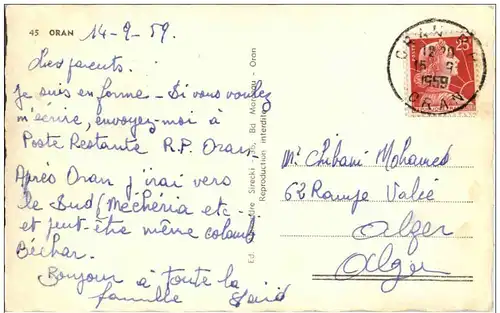 45 ORAN
14-9-59
Les parents.
Je suis en forme - Si vous voulez
m'écrire, envoyez-moi à
Poste Restante R.P. Oran,
Après Oran j'irai vers
le Sud (Mécheria etc -
et peut-être même colomb
Béchar.
Bonjour à toute la
famille Saïd
Reproduction interdite
ORAN
15 9
1959
ORAN
25F
Mr Chibani Mohamed
62 Rampe Valée
Alger
Alger